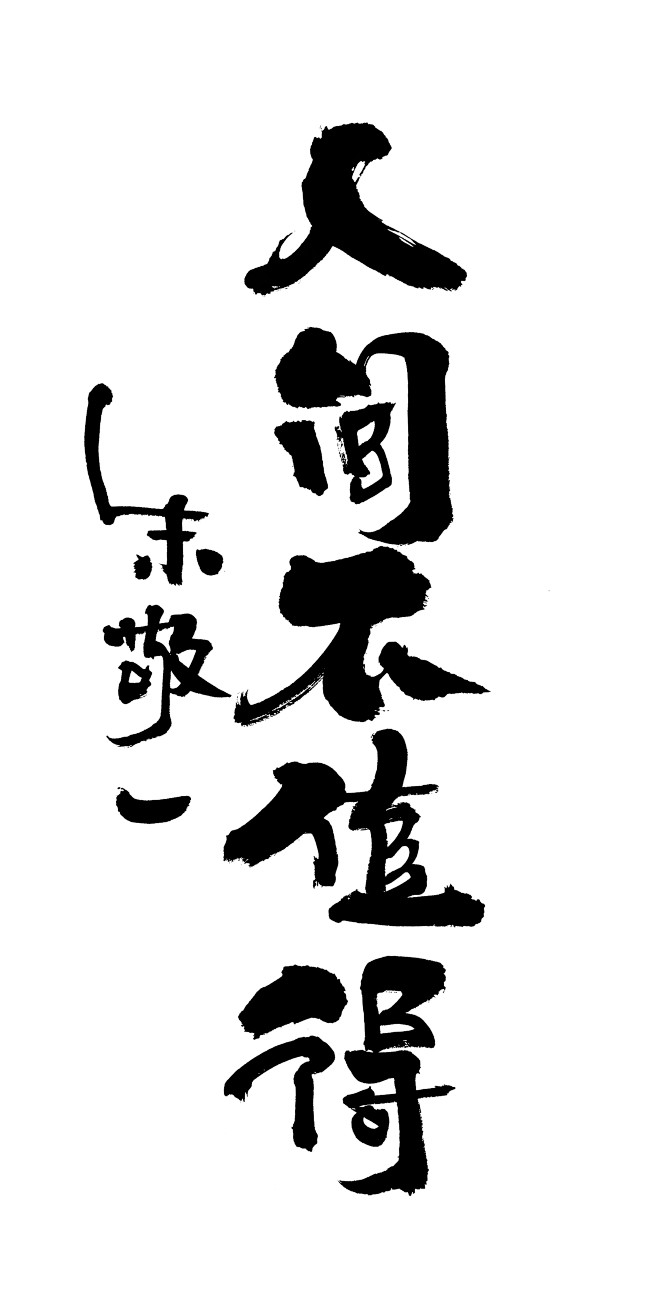 人间不值得
朱敬一